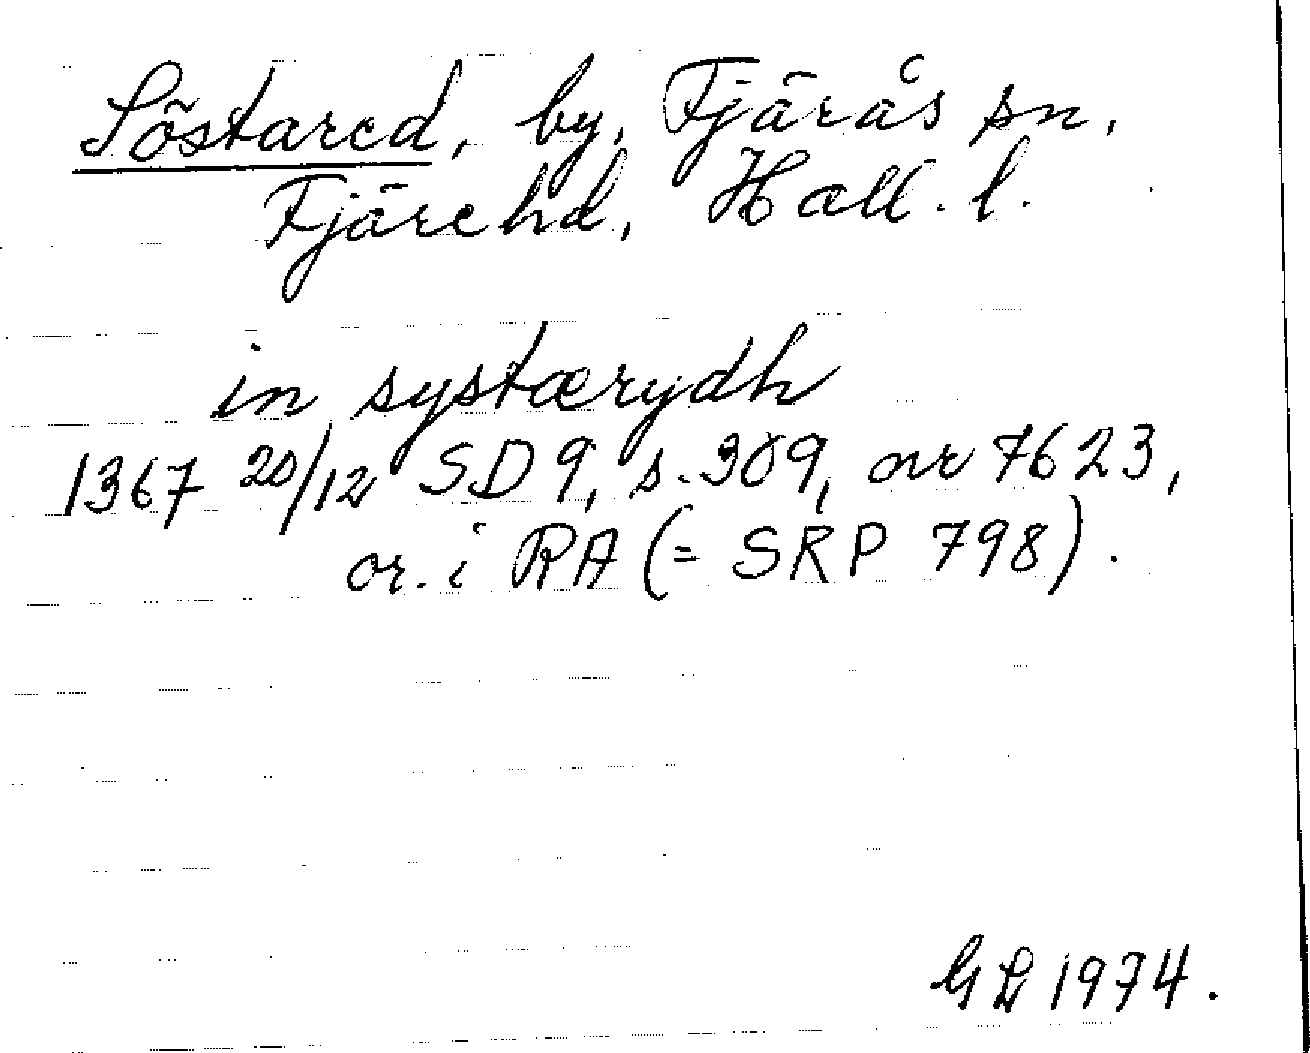 Söstared, by, Fjärås sn,
Fjäre hd, Hall. l.
in systærydh
1367 20/12 SD 9, s. 309, nr 7623,
or. i RA (= SRP 798).
GL 1974.